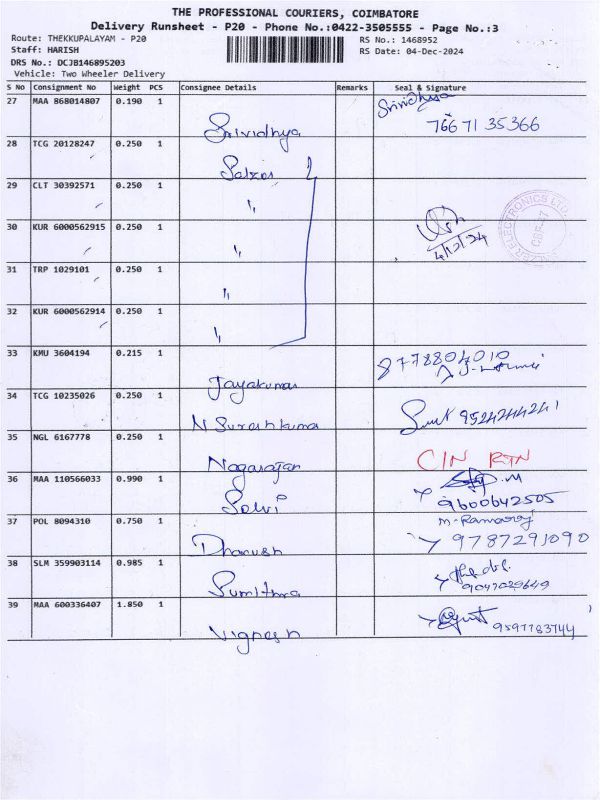 THE PROFESSIONAL COURIERS, COIMBATORE
Delivery Runsheet - P20 - Phone No.:0422-3505555 - Page No.:3
Route: THEKKUPALAYAM - P20
RS No.: 1468952
Staff: HARISH
RS Date: 04-Dec-2024
DRS No.: DCJB146895203
Vehicle: Two Wheeler Delivery
S No Consignment No Weight PCS Consignee Details Remarks Seal & Signature
27 MAA 868014807 0.190 1 Srividhya Srividhya
76671 35366
28 TCG 20128247 0.250 1 Salzer
29 CLT 30392571 0.250 1 "
30 KUR 6000562915 0.250 1 "
4/12/24
ELECTRONICS LTD.
31 TRP 1029101 0.250 1 "
32 KUR 6000562914 0.250 1 "
33 KMU 3604194 0.215 1 Jayakumar 8778804010
34 TCG 10235026 0.250 1 N Sureshkumar 9524244241
35 NGL 6167778 0.250 1 Nagarajan CIN RTN
36 MAA 110566033 0.990 1 Selvi
9600642505
37 POL 8094310 0.750 1 Dhanush M. Ramaraj
9787291090
38 SLM 359903114 0.985 1 Sumithra
9047029649
39 MAA 600336407 1.850 1 Vignesh
9597783744